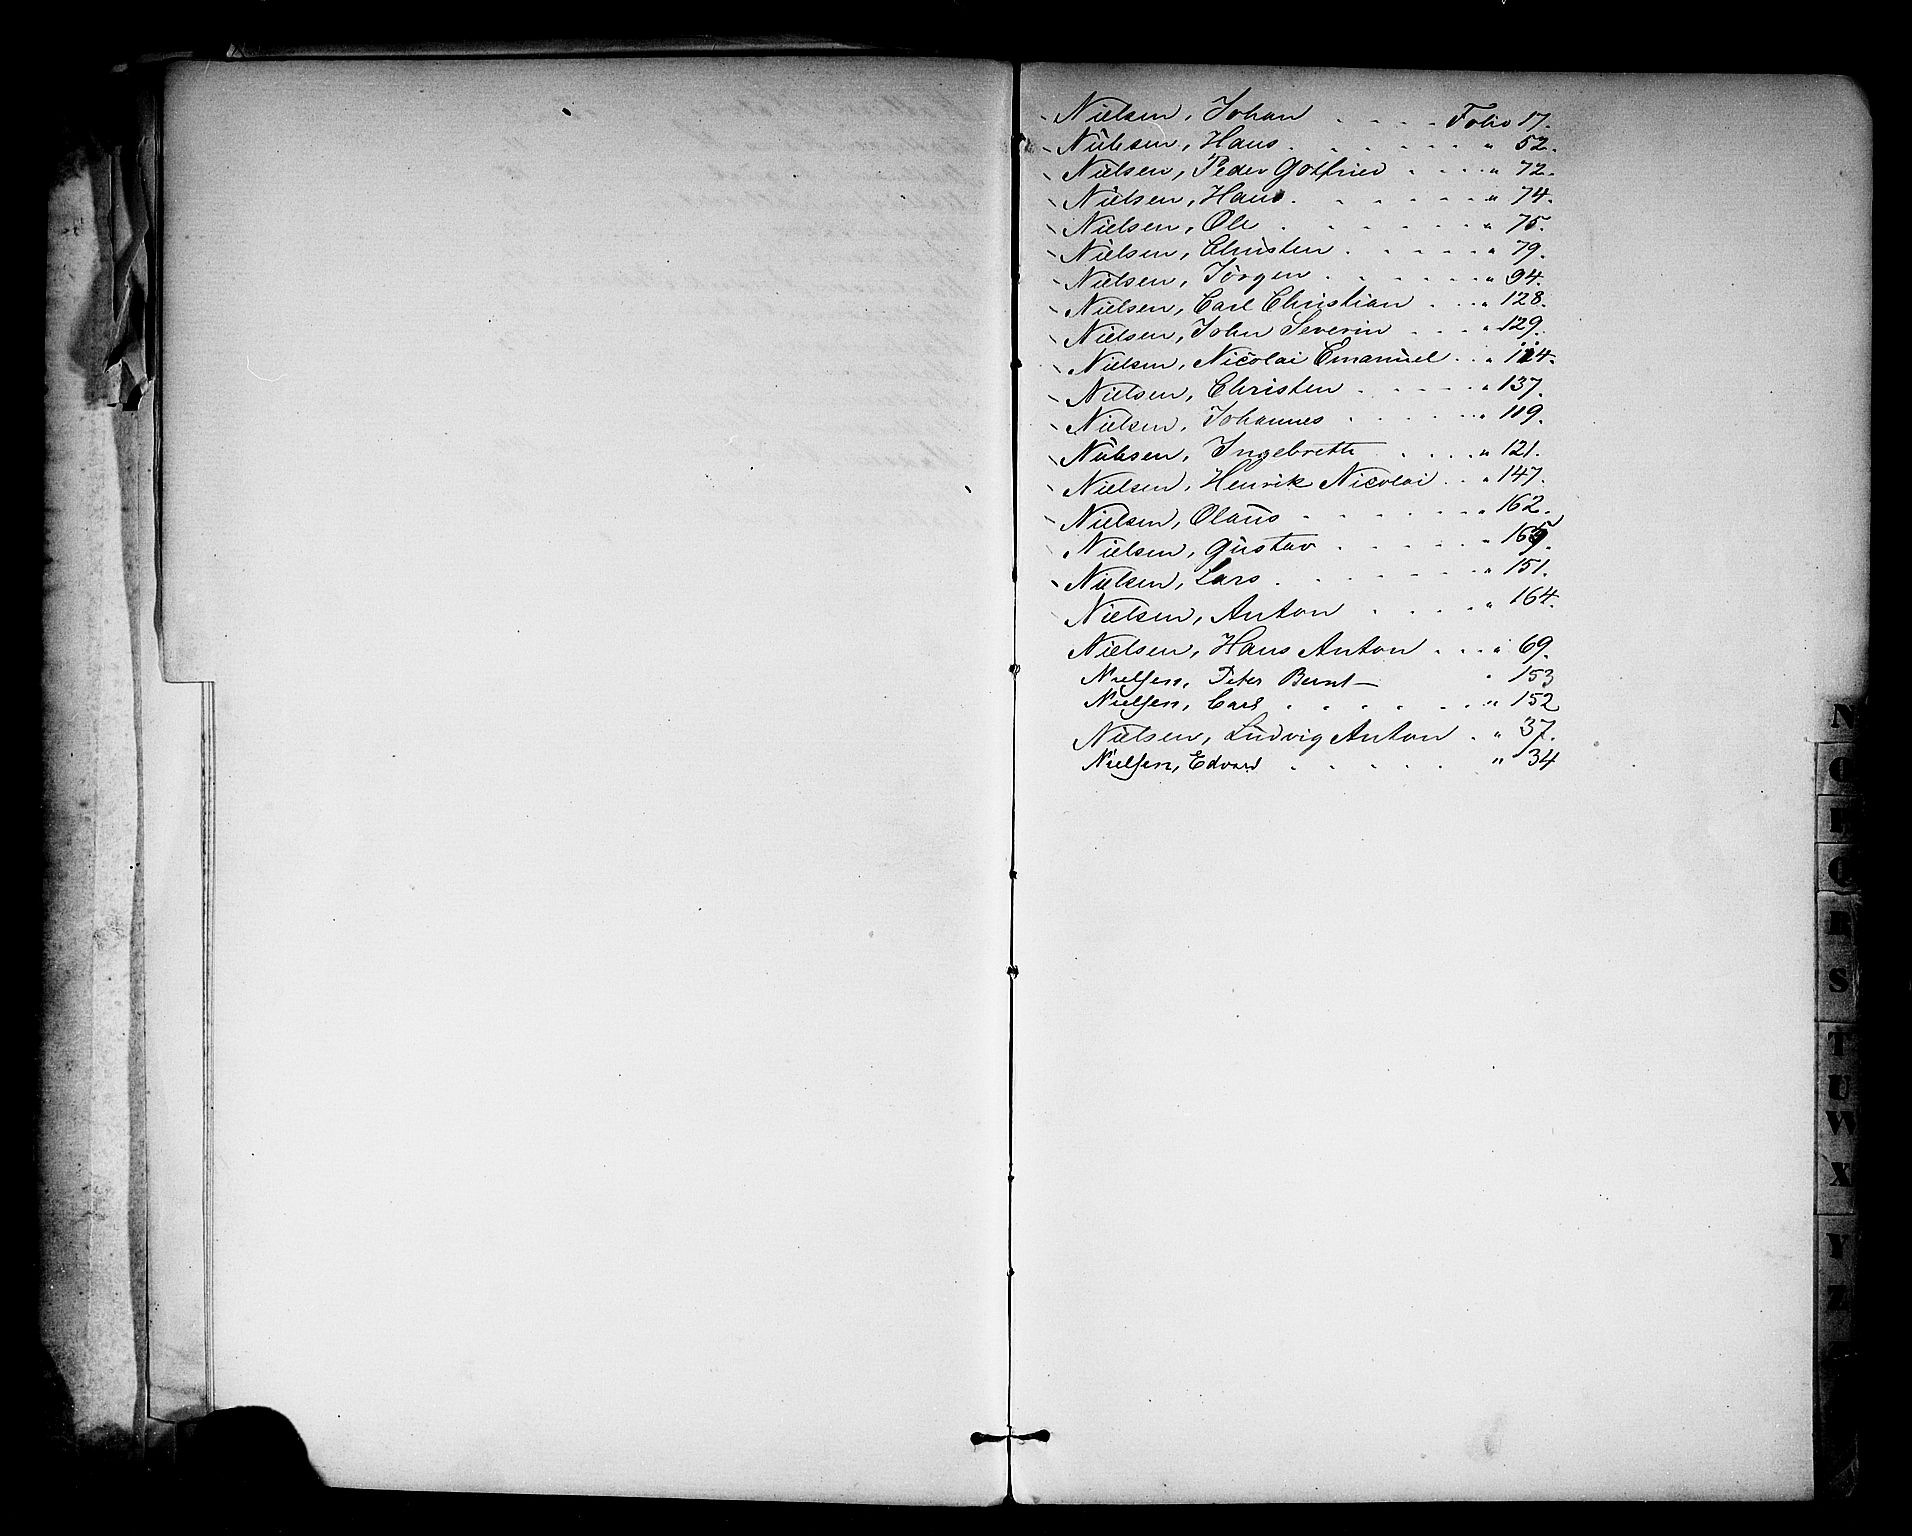 Nielsen, Johan . . . . Folio 17.
Nielsen, Hans . . . . . . " 52.
Nielsen, Peder Gotfried . . . . " 72.
Nielsen, Hans . . . . . . " 74.
Nielsen, Ole . . . . . . " 75.
Nielsen, Christen . . . . . " 79.
Nielsen, Jörgen . . . . . " 94.
Nielsen, Carl Christian . . . " 128.
Nielsen, John Severin . . . . " 129.
Nielsen, Nicolai Emanuel . . " 114.
Nielsen, Christen . . . . . " 137.
Nielsen, Johannes . . . . . " 119.
Nielsen, Ingebreth . . . . " 121.
Nielsen, Henrik Nicolai . . " 147.
Nielsen, Olaus . . . . . . " 162.
Nielsen, Gustav . . . . . "
Nielsen, Lars . . . . . . " 151.
Nielsen, Anton . . . . " 164.
Nielsen, Hans Anton . . . " 69.
Nielsen, Peter Bernt — " 153
Nielsen, Carl . . . . . . " 152
Nielsen, Ludvig Anton . " 37.
Nielsen, Edvard . . . . . " 34
N
O
P
Q
R
S
T
U
W
X
Y
Z